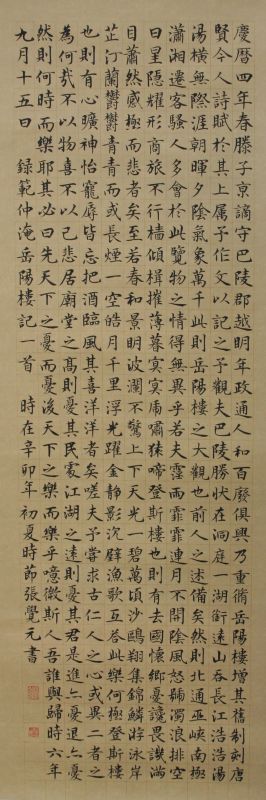 慶曆四年春滕子京謫守巴陵郡越明年政通人和百廢俱興乃重脩岳陽樓增其舊制刻唐
賢今人詩賦於其上屬予作文以記之予觀夫巴陵勝狀在洞庭一湖銜遠山吞長江浩浩湯
湯橫無際涯朝暉夕陰氣象萬千此則岳陽樓之大觀也前人之述備矣然則北通巫峽南極
瀟湘遷客騷人多會於此覽物之情得無異乎若夫霪雨霏霏連月不開陰風怒號濁浪排空
日星隱耀形商旅不行檣傾楫摧薄暮冥冥虎嘯猿啼登斯樓也則有去國懷鄉憂讒畏譏滿
目蕭然感極而悲者矣至若春和景明波瀾不驚上下天光一碧萬頃沙鷗翔集錦鱗游泳岸
芷汀蘭鬱鬱青青而或長煙一空皓月千里浮光躍金靜影沉璧漁歌互答此樂何極登斯樓
也則有心曠神怡寵辱皆忘把酒臨風其喜洋洋者矣嗟夫予嘗求古仁人之心或異二者之
為何哉不以物喜不以己悲居廟堂之高則憂其民處江湖之遠則憂其君是進亦憂退亦憂
然則何時而樂耶其必曰先天下之憂而憂後天下之樂而樂乎噫微斯人吾誰與歸時六年
九月十五日 錄範仲淹岳陽樓記一首 時在辛卯年初夏時節張覺元書